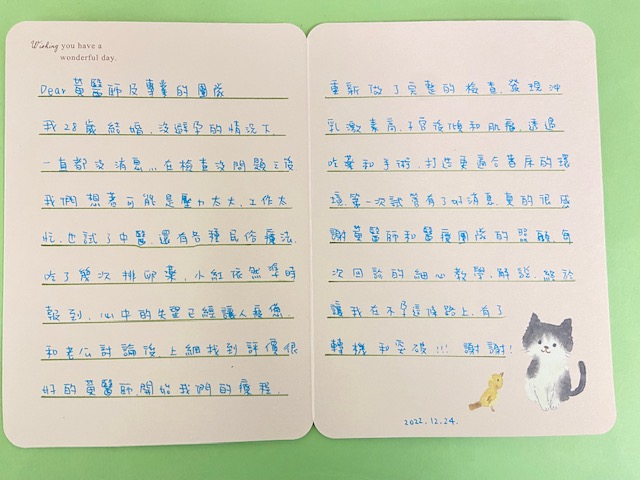 Wishing you have a
wonderful day.
Dear 黃醫師及專業的團隊
我28歲結婚,沒避孕的情況下
一直都沒消息…在檢查沒問題之後
我們想著可能是壓力太大,工作太
忙,也試了中醫,還有各種民俗療法,
吃了幾次排卵藥,小紅依然準時
報到,心中的失望已經讓人疲憊,
和老公討論後,上網找到評價很
好的黃醫師,開始我們的療程,
重新做了完整的檢查,發現泌
乳激素高,子宮後傾和肌瘤,透過
吃藥和手術,打造更適合著床的環
境,第一次試管有了好消息,真的很感
謝黃醫師和醫療團隊的照顧,每
次回診的細心教學、解說,終於
讓我在不孕這條路上,有了
轉機和突破!!! 謝謝!
2022.12.24.